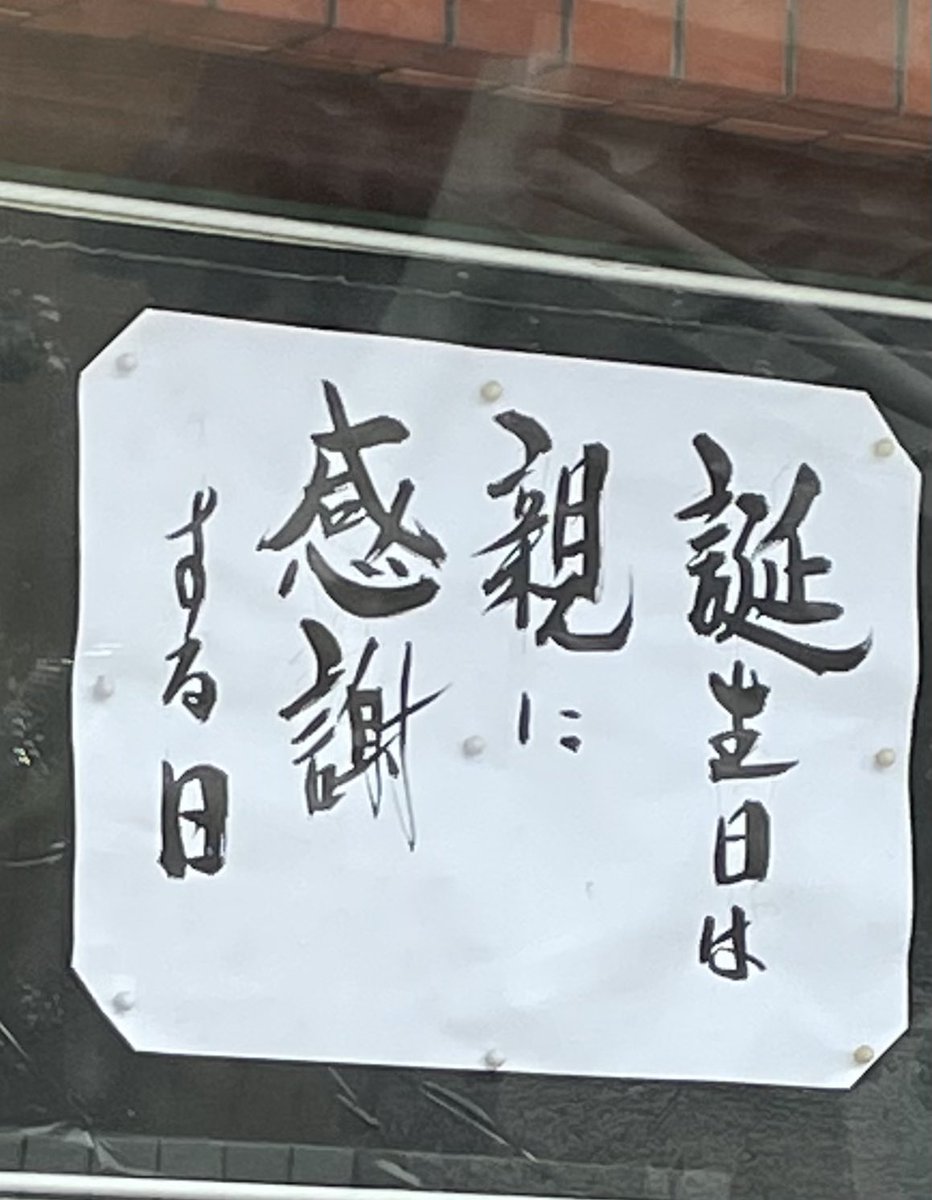 誕生日は
親に
感謝
する日